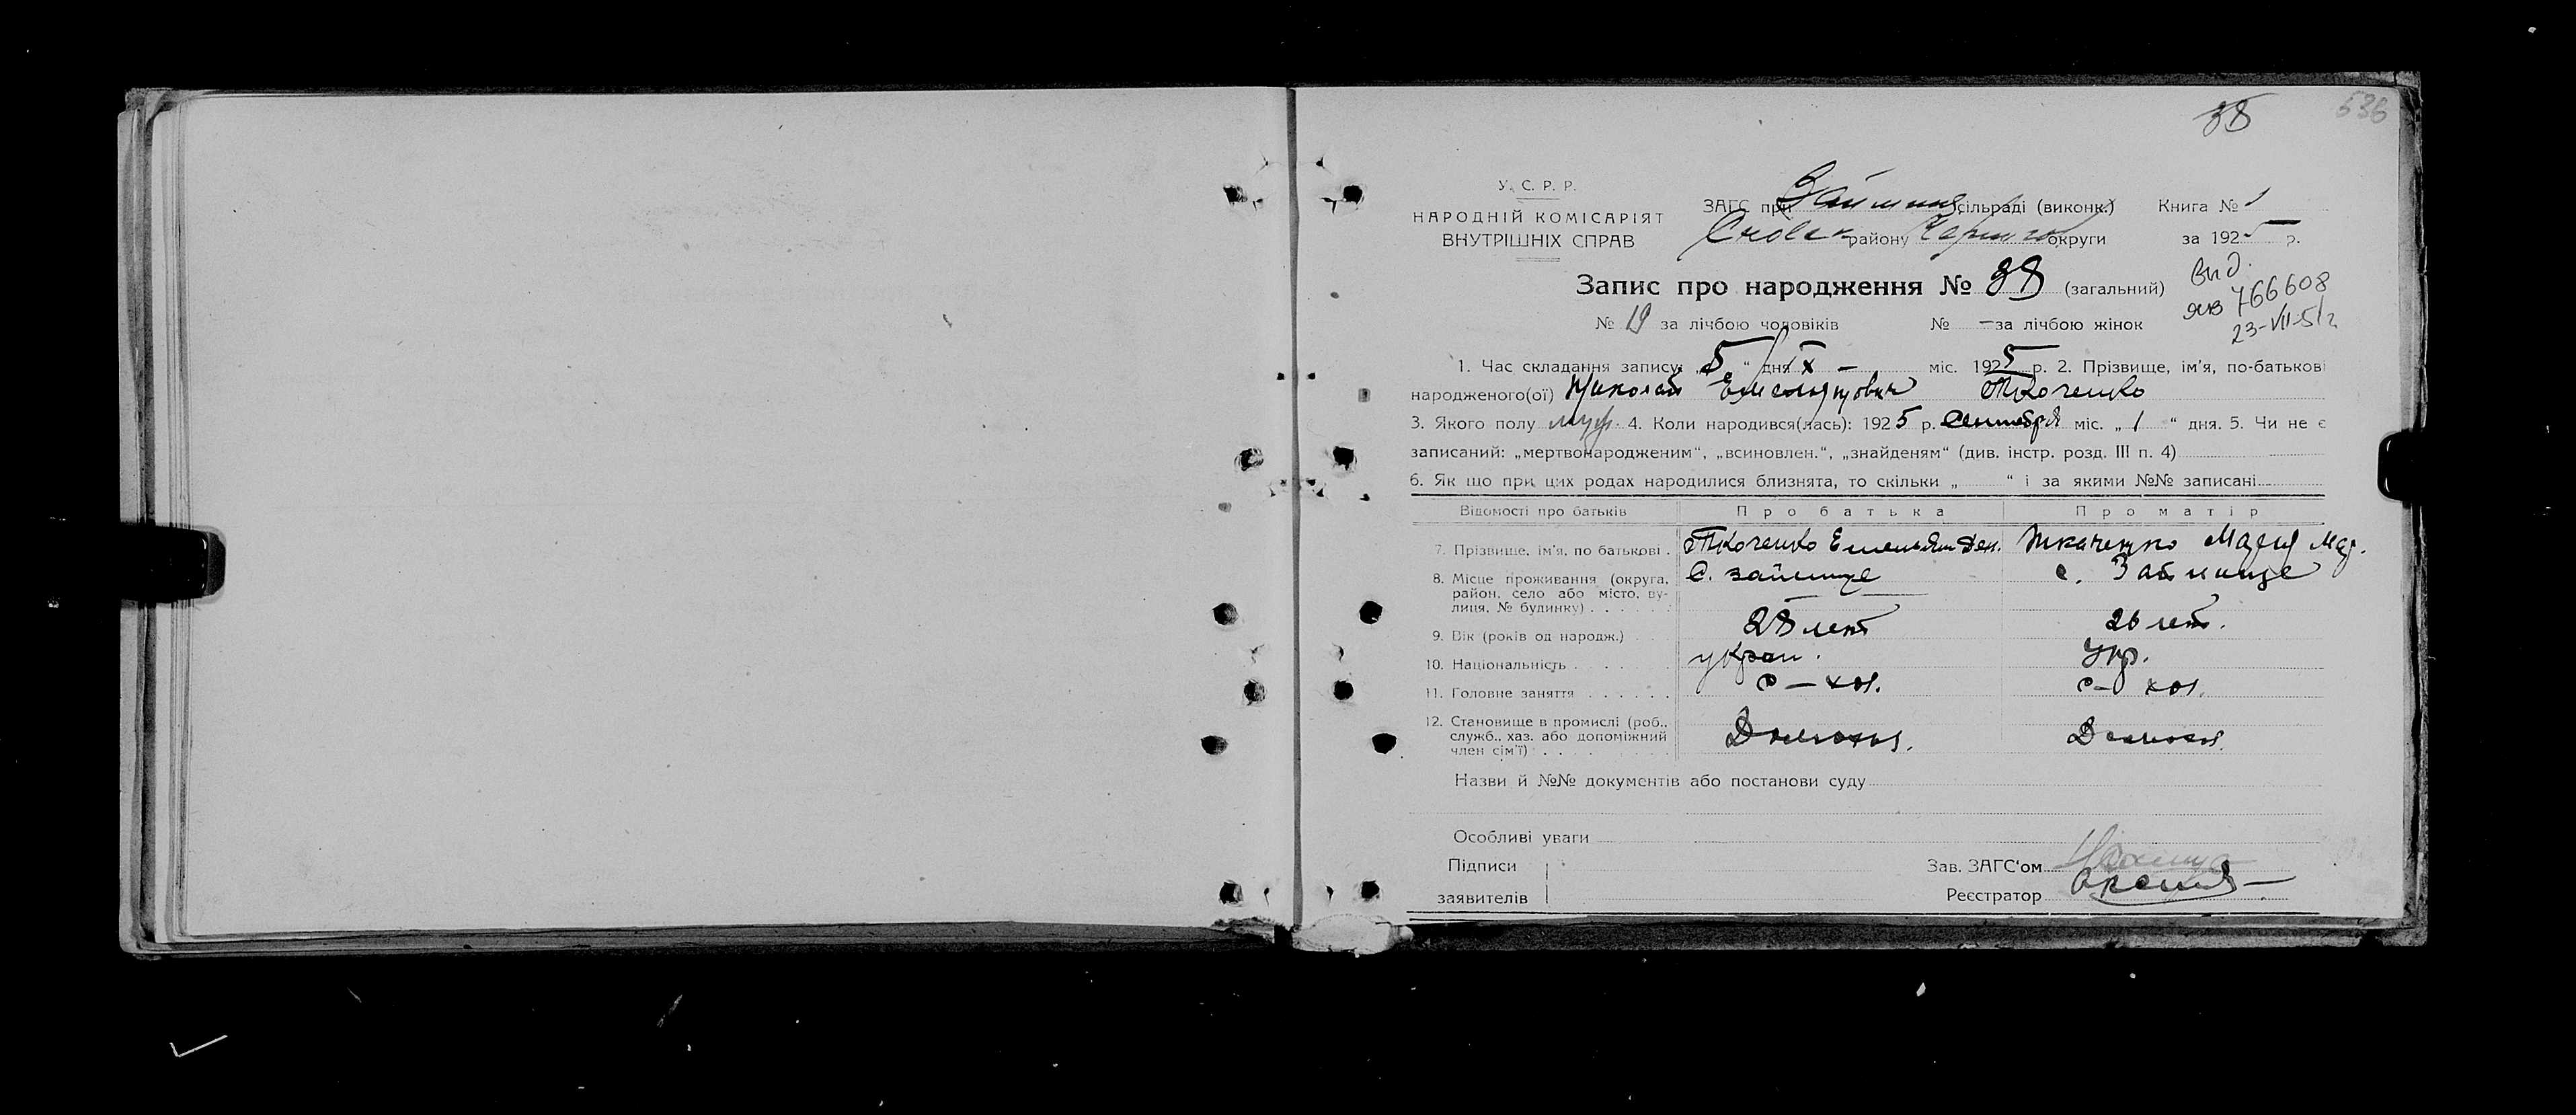 538
38
У. С. Р. Р.
НАРОДНІЙ КОМІСАРІЯТ
ВНУТРІШНІХ СПРАВ
ЗАГС при Займищ сільраді (виконк.) Книга № 1
Сновск району округи за 1925 р.
Запис про народження № 38 (загальний)
Выд.
яю 766608
23-VII-51 г
№ 19 за лічбою чоловіків № – за лічбою жінок
1. Час складання запису: „5“ дня IX – міс. 1925 р. 2. Прізвище, ім'я, по-батькові
народженого(ої) Николай Емельянович Ткаченко
3. Якого полу муж. 4. Коли народився(лась): 1925 р. Сентября міс. „1“ дня. 5. Чи не є
записаний: „мертвонародженим“, „всиновлен.“, „знайденям“ (див. інстр. розд. III п. 4)
6. Як що при цих родах народилися близнята, то скільки „ “ і за якими №№ записані
Відомості про батьків Про батька Про матір
7. Прізвище, ім'я, по батькові . Ткаченко Емельян Дем. Ткаченко Мария Мар.
8. Місце проживання (округа, С. Займище с. Займище
район, село або місто, ву-
лиця, № будинку)
9. Вік (років од народж.) 28 лет 26 лет.
10. Національність украи. Укр.
11. Головне заняття с–хоз. с– хоз.
12. Становище в промислі (роб.,
служб., хаз. або допоміжний Домохоз. Домохоз.
член сім'ї)
Назви й №№ документів або постанови суду
Особливі уваги
Підписи
заявителів
Зав. ЗАГС'ом
Реєстратор